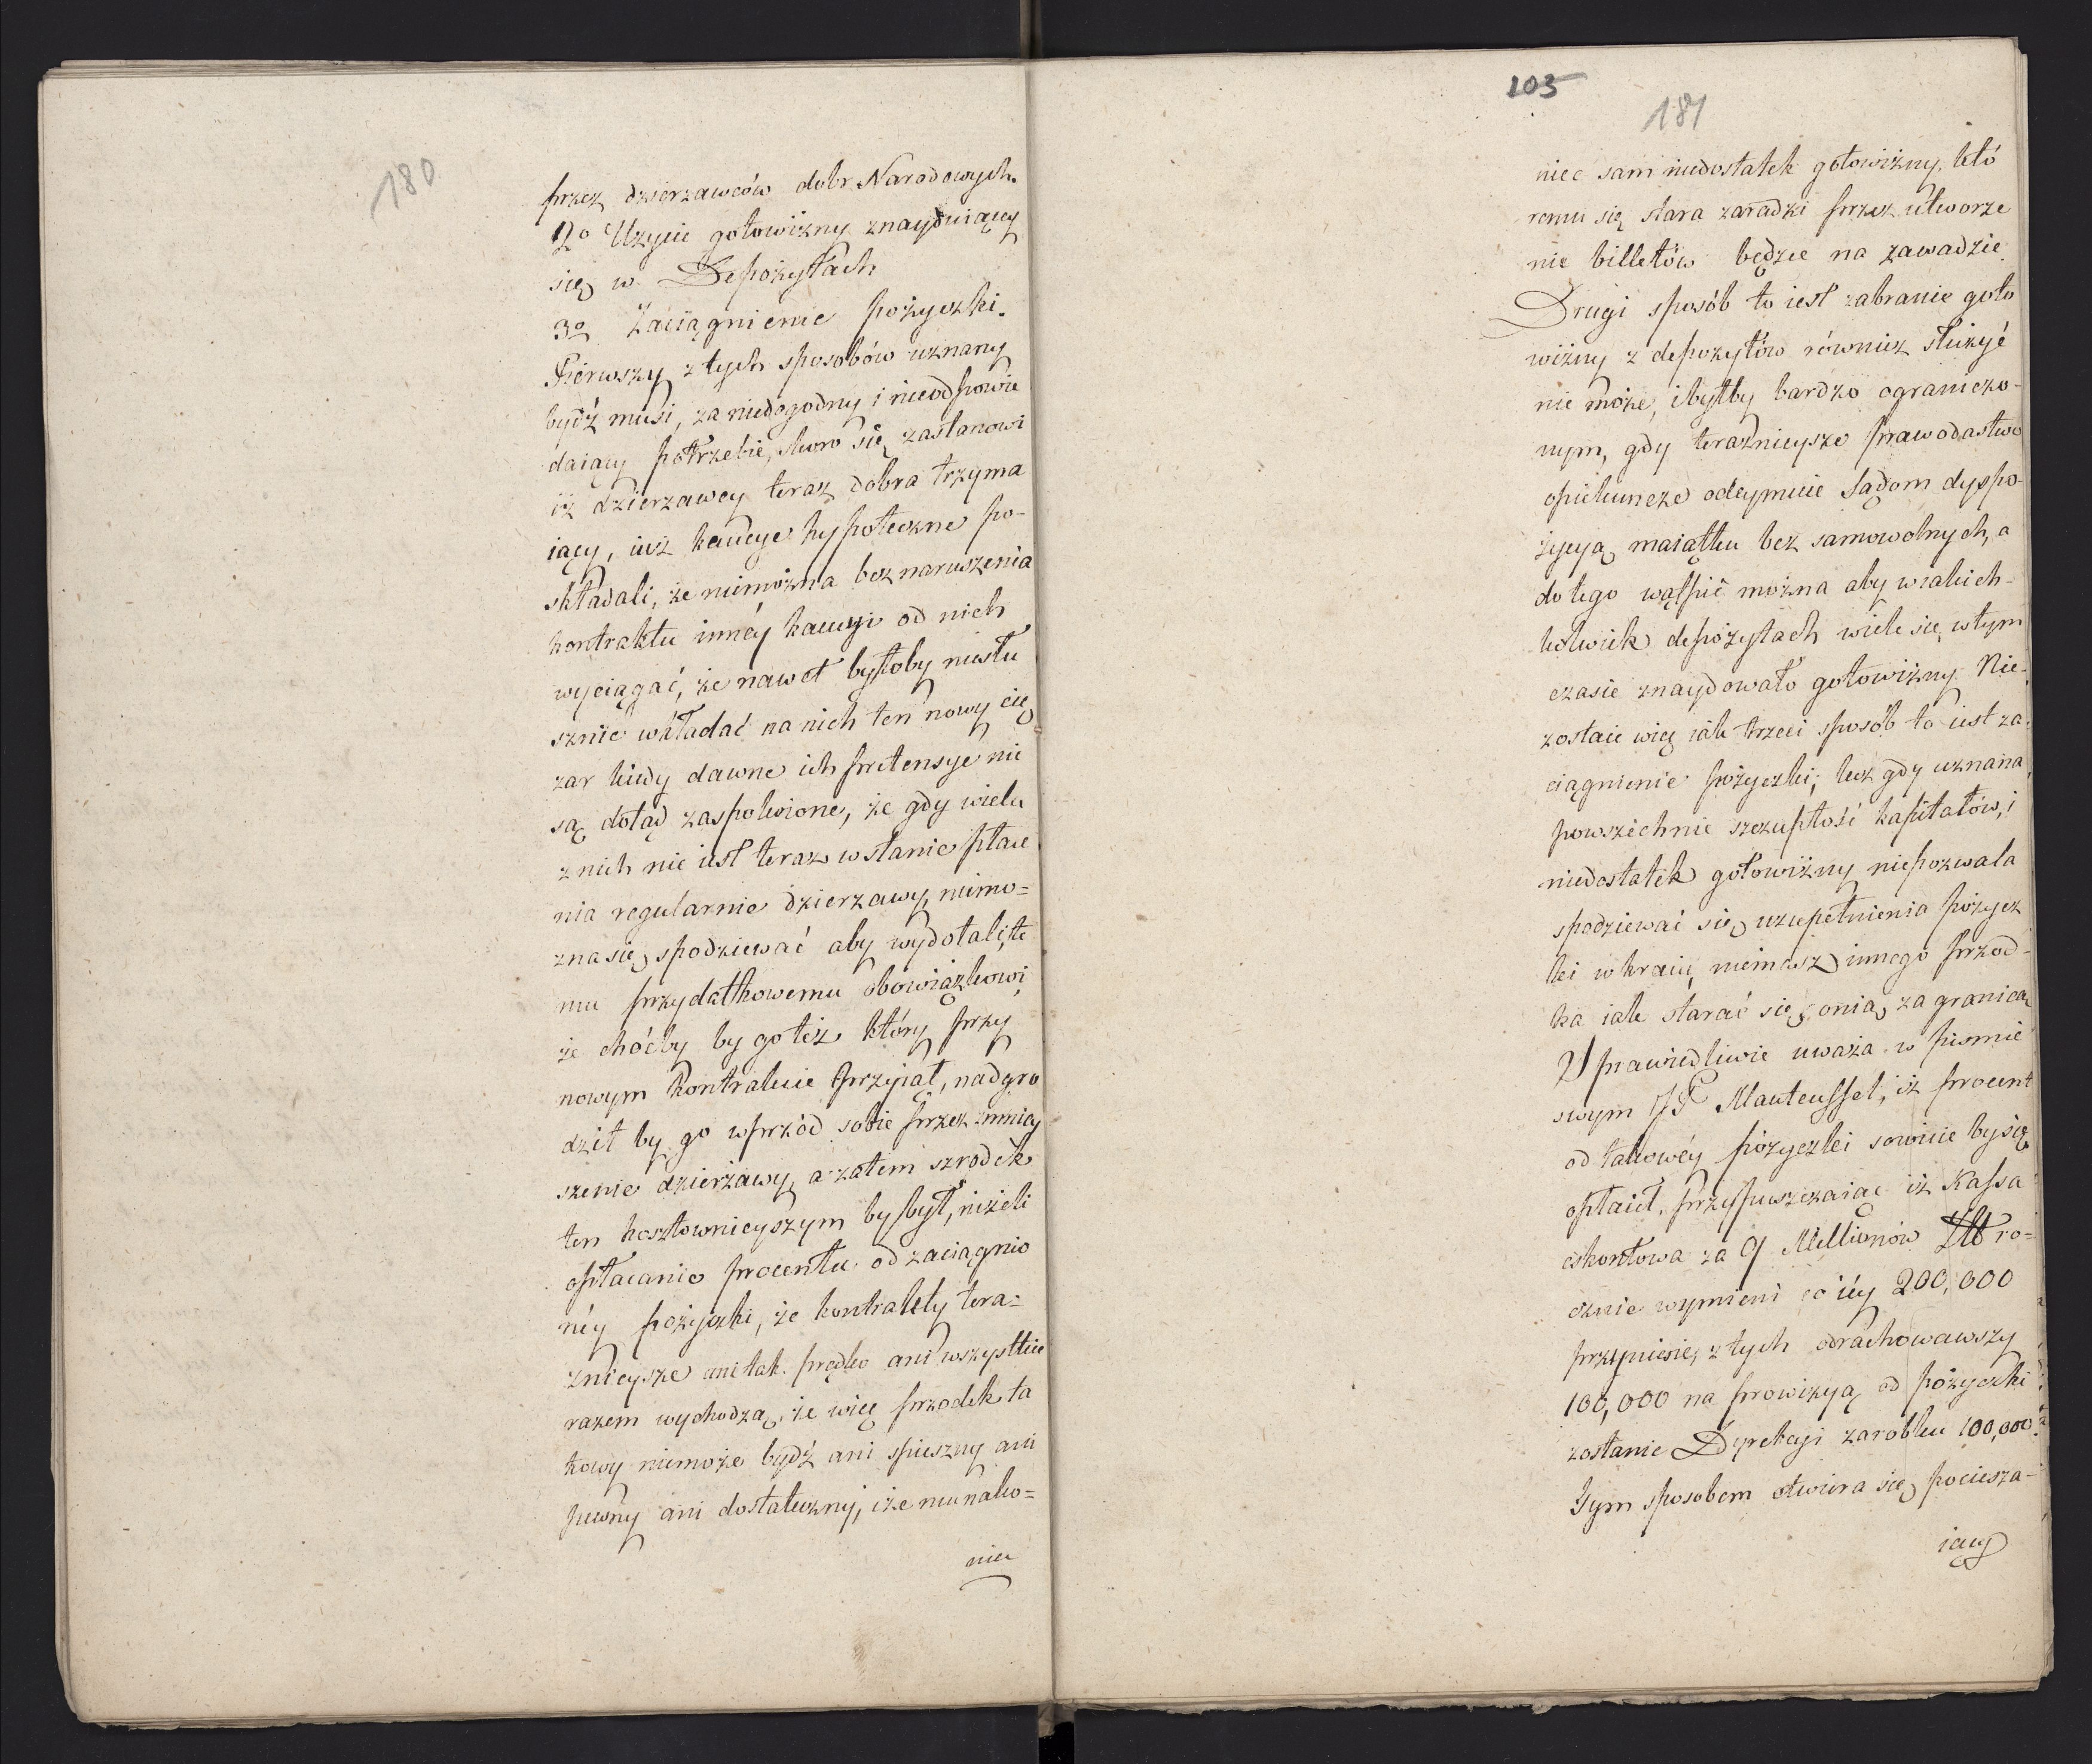 180
przez dzierzawców dobr Narodowych.
2o Uzycie gotowizny znayduiącey
się w Depozytach
3o Zaciągnienie pożyczki.
Pierwszy z tych sposobów uznany
bydź musi, za niedogodny i nieodpowia
daiący potrzebie, skoro się zastanowi
iż dzierzawcy teraz dobra trzyma
iący, iuż kaucye hypoteczne po-
składali, że niemożna bez naruszenia
kontraktu innéy kaucyi od nich
wyciągać, że nawet byłoby niesłu
sznie wkładać na nich ten nowy cię
żar kiedy dawne ich pretensye nie
są dotąd zaspokoione, że gdy wielu
z nich nie iest teraz w stanie płace
nia regularnie dzierzawy, niemo=
zna się spodziewać aby wydołali, te
mu przydatkowemu obowiązkowi
że choćby by go też który przy
nowym kontrakcie przyiął, nadgro
dził by go wprzód sobie przez zmniey
szenie dzierżawy, a zatem szrodek
ten kosztownieyszym by był, niżeli
opłacanie procentu od zaciągnio
néy pożyczki, że kontrakty tera=
znieysze ani tak prędko ani wszystkie
razem wychodzą, że więc przodek ta
kowy niemoże bydź ani spieszny ani
pewny ani dostateczny, i że mu nako=
niec
103
181
niec sam niedostatek gotowizny, któ
remu się stara zaradzi przez utworze
nie billetów będzie na zawadzie.
Drugi sposób to iest zabranie goto
wizny z depozytów równiez służyć
nie może, i byłby bardzo ograniczo-
nym, gdy teraznieysze prawodastwo
opiekuncze odeymuie Sądom dyspo-
zycyą maiątku bez samowolnych, a
do tego wątpić można aby w iakich-
kolwiek depozytach wiele się w tym
czasie znaydowało gotowizny. Nie-
zostaie więc iak trzeci sposób to iest za-
ciągnienie pożyczki; lecz gdy uznana
powszechnie szczupłość kapitałów, i
niedostatek gotowizny niepozwala
spodziewać się uzupełnienia pożycz
ki w kraiu, niemasz innego przod-
ka iak starać się o nią za granicą
Sprawiedliwie uważa w pismie
swym JP Manteuffel, iż procent
od takowéy pożyczki sowicie by się
opłacił, przypuszczaiąc iż Kassa
eskontowa za 9 Millionów Złt ro=
cznie wymieni co iéy 200,000
przyniesie, z tych odrachowawszy
100,000 na prowizyą od pożyczki
zostanie Dyrekcyi zarobku 100,000.
Tym sposobem otwiera się pociesza-
iący